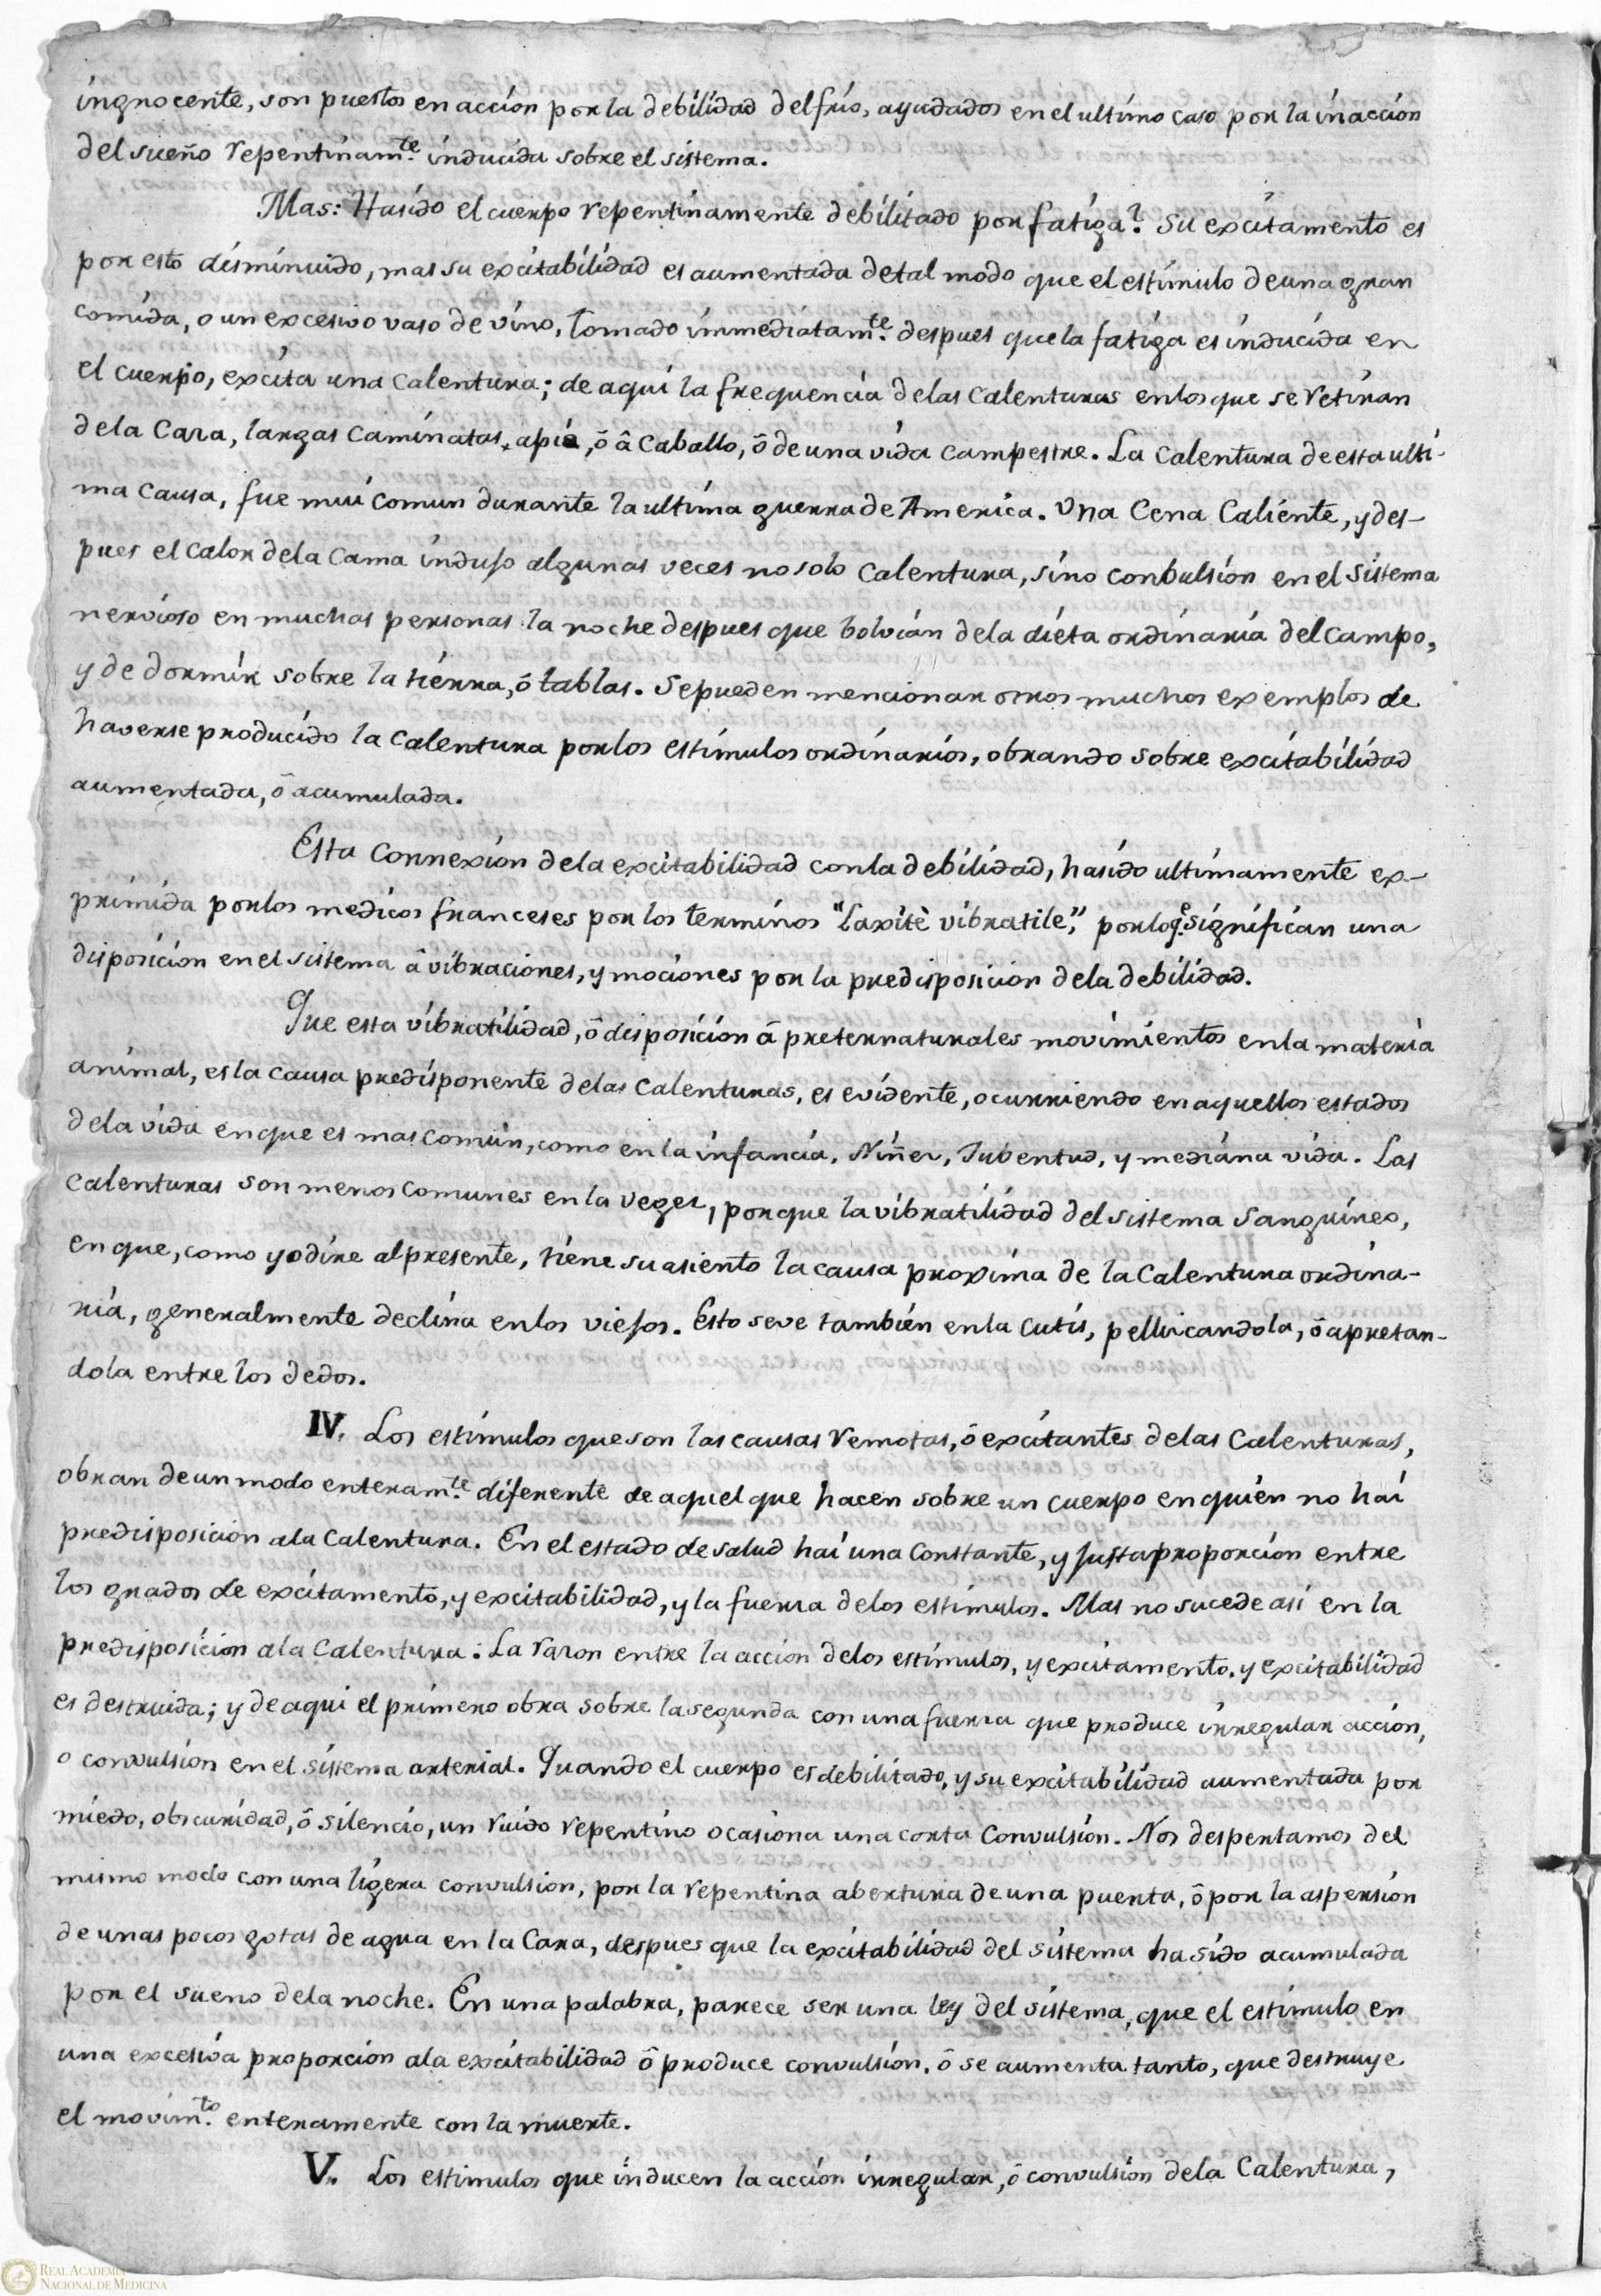 ingnocente, son puestos en acción por la debilidad del frio, ayudados en el ultimo caso por la inacción
del sueño repentinam.te inducida sobre el sistema.
Mas: Hasido el cuerpo repentinamente debilitado por fatiga? Su excitamento es
por esto disminuido, mas su excitabilidad es aumentada detal modo que el estimulo deuna gran
comida, o un excesivo vaso de vino, tomado immediatam.te despues que la fatiga es inducida en
el cuerpo, excita una calentura; de aqui la frequencia delas Calenturas enlos que se retiran
dela Caza, largas Caminatas, apie, ô â Caballo, ô de una vida campestre. La calentura de esta ulti-
ma causa, fue mui comun durante la ultima guerra de America. Una Cena Caliente, y des-
pues el calor dela cama induso algunas veces no solo Calentura, sino conbulsión en el Sistema
nervioso en muchas personas la noche despues que bolvian dela diéta ordinaria del Campo,
y de dormir sobre la tierra, ô tablas. Sepueden mencionar otros muchos exemplos de
haverse producido la Calentura porlos estimulos ordinarios, obrando sobre excitabilidad
aumentada, ô acumulada.
Esta Connexión dela excitabilidad conla debilidad, hasido ultimamente ex-
primida porlos medicos franceses por los terminos "Laxitè vibratile," porloq.e significan una
disposición en el sistema â vibraciones, y mociones por la predisposición dela debilidad.
Que esta vibratilidad, ô disposición â preternaturales movimientos enla materia
animal, es la causa predisponente delas Calenturas, es evidente, ocurriendo en aquellos estados
dela vida enque es mas comun, como en la infancia, Niñez, Jubentud, y mediana vida. Las
calenturas son menos comunes en la vegez, porque la vibratilidad del sistema Sanguineo,
en que, como yo dire al presente, tiene su asiento la causa proxima de la Calentura ordina-
ria, generalmente declina enlos viejos. Esto seve también enla cutis, pellizcandola, ô apretan-
dola entre los dedos.
IV. Los estimulos que son las causas remotas, ô excitantes delas Calenturas,
obran de un modo enteram.te diferente de aquel que hacen sobre un cuerpo en quién no hai
predisposición ala Calentura. En el estado de salud hai una Constante, y justa proporción entre
los grados de excitamento, y excitabilidad, y la fuerza delos estimulos. Mas no sucede asi en la
predisposición ala Calentura: La razon entre la acción delos estimulos, y excitamento, y excitabilidad
es destruida; y de aqui el primero obra sobre la segunda con una fuerza que produce irregular acción,
o convulsion en el sistema arterial. Quando el cuerpo es debilitado, y su excitabilidad aumentada por
miedo, obscuridad, ô silencio, un ruido repentino ocasiona una corta Convulsión. Nos despertamos del
mismo modo con una ligera convulsion, por la repentina abertura de una puerta, ô por la aspersion
de unas pocas gotas de agua en la Cara, despues que la excitabilidad del sistema ha sido acumulada
por el sueno dela noche. En una palabra, parece ser una ley del sistema, que el estimulo en
una excesiva proporción ala excitabilidad ô produce convulsión, ô se aumenta tanto, que destruye
el movim.to enteramente con la muerte.
V. Los estimulos que inducen la acción irregular, ô convulsion dela Calentura,
REAL ACADEMIA
NACIONAL DE MEDICINA